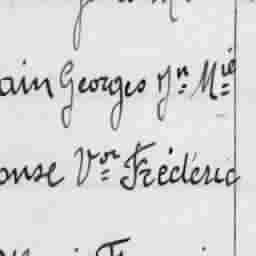 ain Georges Jn Mie
onse Vor Frédéric